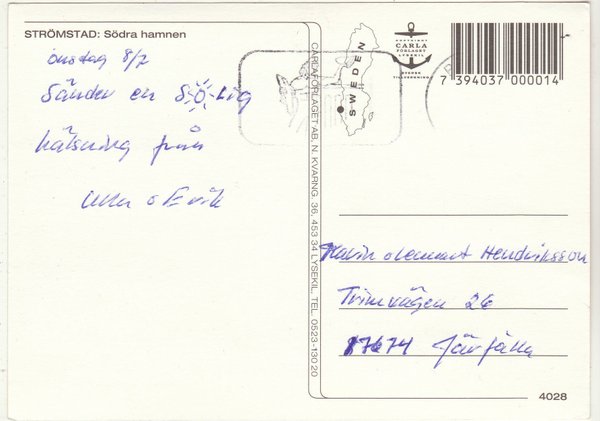 STRÖMSTAD: Södra hamnen
onsdag 8/7
Sänder en SÖ-lig
hälsning från
Ulla o Erik
CARLA FÖRLAGET AB, N. KVARNG. 36, 453 34 LYSEKIL, TEL. 0523-130 20
SWEDEN
CARLA
FÖRLAGET
LYSEKIL
7 394037 000014
Karin o Lennart Hendriksson
Trimvägen 26
17674 Järfälla
4028